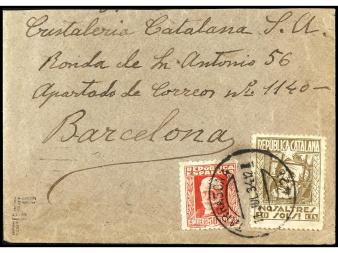 Cristaleria Catalana S. A.
Ronda de Sn. Antonio 56
Apartado de Correos nº 1140-
Barcelona
REPUBLICA
ESPAÑOLA
REPÚBLICA CATALANA
NOSALTRES
SOLS!